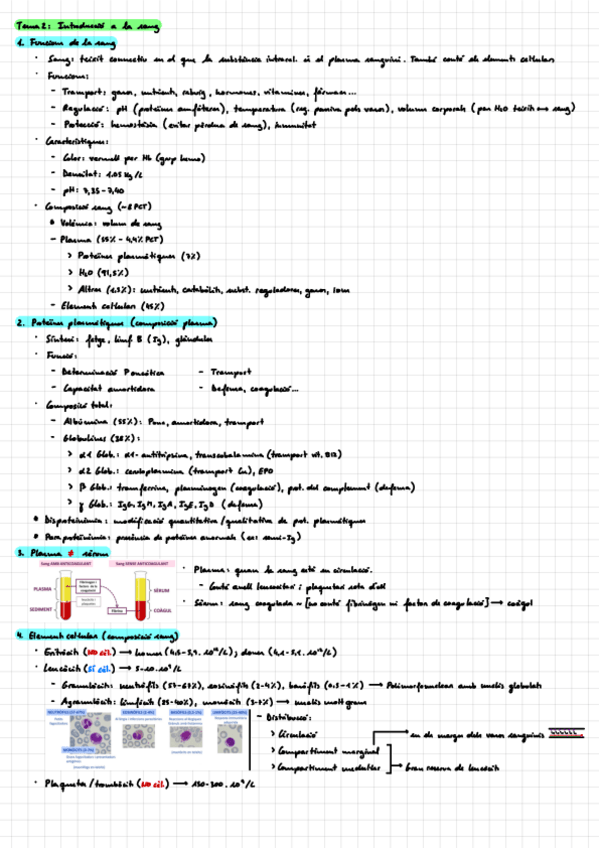 Tema 2: Introducció a la sang
1. Funcions de la sang
· Sang: teixit connectiu en el que la substància intercel. és el plasma sanguini. També conté els elements cel·lulars
· Funcions:
- Transport: gasos, nutrients, rebuig, hormones, vitamines, fàrmacs...
- Regulació: pH (proteïnes amfòteres), temperatura (reg. passiva pels vasos), volum corporals (pas H2O teixits a sang)
- Protecció: hemostàsia (evitar pèrdua de sang), immunitat
· Característiques:
- Color: vermell per Hb (grup hemo)
- Densitat: 1.05 Kg/L
- pH: 7,35-7,40
· Composició sang (~8 PCT)
• Volèmia: volum de sang
- Plasma (55% - 4,4% PCT)
> Proteïnes plasmàtiques (7%)
> H2O (91,5%)
> Altres (1.5%): nutrients, catabòlits, subst. reguladores, gasos, ions
- Elements cel·lulars (45%)
2. Proteïnes plasmàtiques (composició plasma)
· Síntesi: fetge, limf B (Ig), glàndules
· Funció:
- Determinació P oncòtica - Transport
- Capacitat amortidora - Defensa, coagulació...
· Composició total:
- Albúmina (55%): Ponc, amortidora, transport
- Globulines (38%):
> α1 Glob.: α1-antitripsina, transcobalamina (transport vit. B12)
> α2 Glob.: ceruloplasmina (transport Cu), EPO
> β Glob.: transferrina, plasminogen (coagulació), prot. del complement (defensa)
> γ Glob.: IgG, IgM, IgA, IgE, IgD (defensa)
• Disproteïnèmia: modificació quantitativa/qualitativa de prot. plasmàtiques
• Paraproteïnèmia: presència de proteïnes anormals (ex: semi-Ig)
3. Plasma ≠ sèrum
Sang AMB ANTICOAGULANT Sang SENSE ANTICOAGULANT
PLASMA
SÈRUM
SEDIMENT
Fibrina
COÀGUL
· Plasma: quan la sang està en circulació.
- Conté
· Sèrum: sang coagulada = [no conté fibrinogen ni factors de coagulació] → coàgul
4. Elements cel·lulars (composició sang)
· Eritròcits (NO cèl.) → homes (4,5-5,9. 10¹²/L); dones (4,1-5,1. 10¹²/L)
· Leucòcits (SÍ cèl.) → 5-10.10⁹/L
- Granulòcits: neutròfils (57-67%), eosinòfils (2-4%), basòfils (0.5-1%) → Polimorfonuclears amb nuclis globulats
- Agranulòcits: limfòcits (25-40%), monòcits (3-7%) → nuclis molt grans
- Distribució:
> Circulació
> Compartiment marginal
> Compartiment medul·lar
en els marges dels vasos sanguinis
Gran reserva de leucòcits
· Plaquetes/trombòcits (NO cèl.) → 150-300 . 10⁹/L